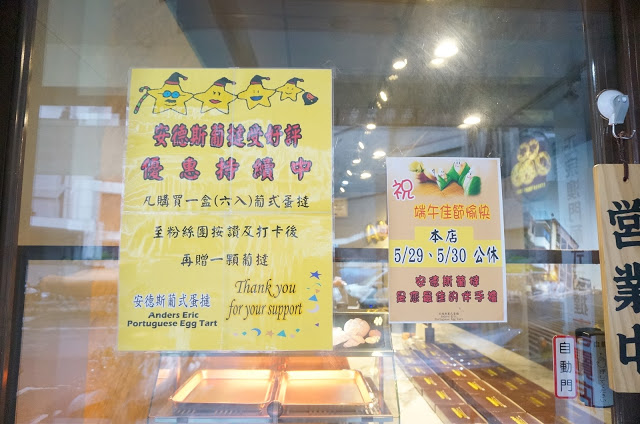 安德斯葡撻受好評
優惠持續中
凡購買一盒(六入)葡式蛋撻
至粉絲團按讚及打卡後
再贈一顆葡撻
安德斯葡式蛋撻
Anders Eric
Portuguese Egg Tart
Thank you
for your support
祝
端午佳節愉快
本店
5/29、5/30 公休
安德斯葡撻
是您最佳的伴手禮
營業中
自動門